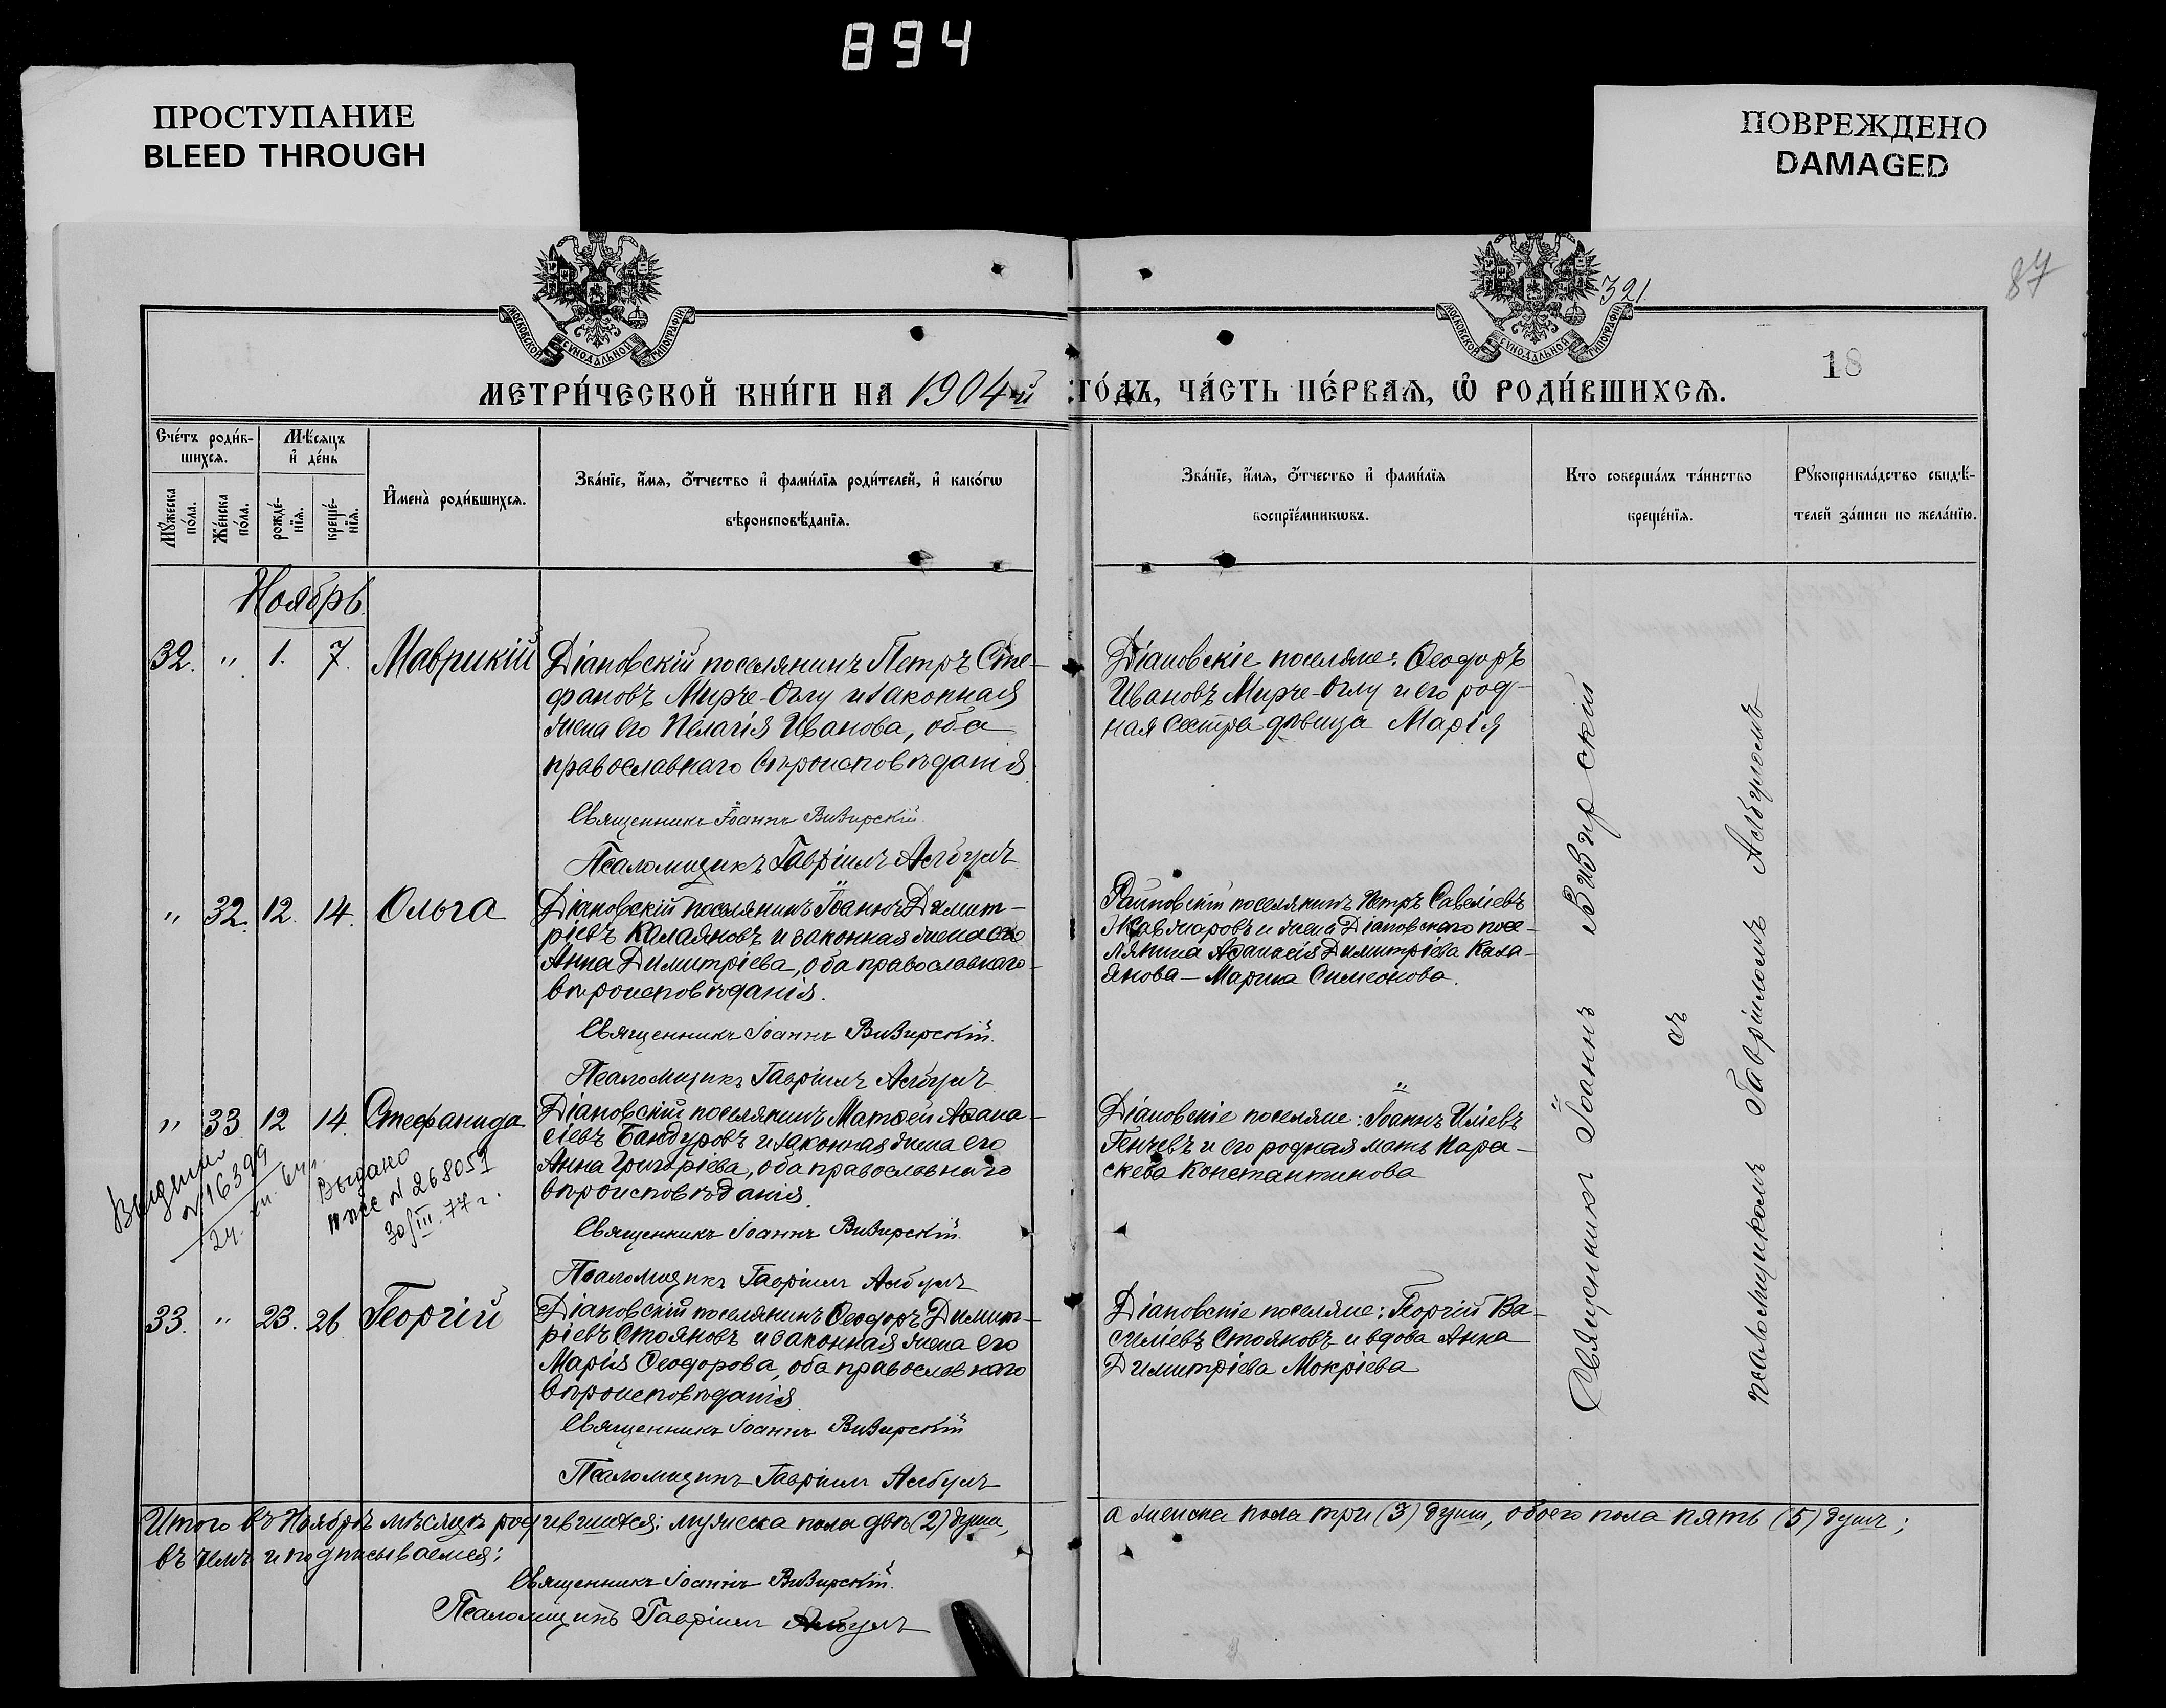 894
ПРОСТУПАНИЕ
BLEED THROUGH
ПОВРЕЖДЕНО
DAMAGED
МОСКОВСКОЙ СУНОДАЛЬНОЙ ТИПОГРАФІИ
МОСКОВСКОЙ СУНОДАЛЬНОЙ ТИПОГРАФІИ
321
87
18
МЕТРИ́ЧЕСКОЙ КНИ́ГИ НА 1904й ГО́ДЪ, ЧА́СТЬ ПЕ́РВАѦ, Ѡ҆ РОДИ́ВШИХСѦ.
Сче́тъ роди́в-
шихсѧ.
Мѣ́сѧцъ
и҆ де́нь
Мꙋ́жеска
по́ла.
Же́нска
по́ла.
рожде́-
нїѧ.
креще́-
нїѧ.
И҆мена̀ роди́вшихсѧ.
Зва́нїе, и҆́мѧ, ѻ҆́тчество и҆ фами́лїѧ роди́телей, и҆ како́гѡ
вѣроисповѣ́данїѧ.
Зва́нїе, и҆́мѧ, ѻ҆́тчество и҆ фами́лїѧ
воспрїе́мникѡвъ.
Кто соверша́лъ та́инство
креще́нїѧ.
Рꙋкоприкла́дство свидѣ́-
телей за́писи по жела́нїю.
Ноябрь.
32. " 1. 7. Маврикій
Діановскій поселянинъ Петръ Сте-
фановъ Мирче-Оглу и законная
жена его Пелагія Иванова, оба
православнаго вѣроисповѣданія.
Священникъ Іоаннъ Визирскій.
Псаломщикъ Гавріилъ Албулъ
Діановскіе поселяне: Ѳеодоръ
Ивановъ Мирче-Оглу и его род-
ная сестра дѣвица Марія
" 32. 12. 14. Ольга
Діановскій поселянинъ Іоаннъ Димит-
ріевъ Калаяновъ и законная жена его
Анна Димитріева, оба православнаго
вѣроисповѣданія.
Священникъ Іоаннъ Визирскій.
Псаломщикъ Гавріилъ Албулъ
поселянинъ Петръ Савеліевъ
и жена Діановскаго посе-
лянина Аѳанасія Димитріева Кала-
янова - Марина Симеонова.
" 33 12 14. Стефанида
Діановскій поселянинъ Матѳей Аѳана-
сіевъ Бандуровъ и законная жена его
Анна Григоріева, оба православнаго
вѣроисповѣданія.
Священникъ Іоаннъ Визирскій.
Псаломщикъ Гавріилъ Албулъ
Діановскіе поселяне: Іоаннъ Иліевъ
Генчевъ и его родная мать Пара-
скева Константинова
№ 16399
24. XII. 64 г.
Выдано
№ 268059
30/III. 77 г.
33. " 23. 26 Георгій
Діановскій поселянинъ Ѳеодоръ Димит-
ріевъ Стояновъ и законная жена его
Марія Ѳеодорова, оба православнаго
вѣроисповѣданія.
Священникъ Іоаннъ Визирскій
Псаломщикъ Гавріилъ Албулъ
Діановскіе поселяне: Георгій Ва-
силіевъ Стояновъ и вдова Анна
Димитріева Мокріева
Священникъ Іоаннъ Визирскій
съ
псаломщикомъ Гавріиломъ Албуломъ
Итого въ Ноябрѣ мѣсяцѣ родившихся: мужеска пола двѣ (2) души, а женска пола три (3) души, обоего пола пять (5) душъ;
въ чемъ и подписываемся:
Священникъ Іоаннъ Визирскій.
Псаломщикъ Гавріилъ Албулъ